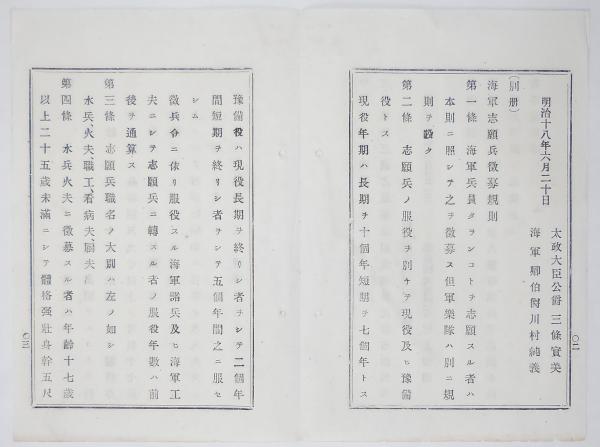 明治十八年六月二十日
太政大臣公爵 三條實美
海軍卿伯爵川村純義
(別册)
海軍志願兵徵募規則
第一條 海軍兵員タランコトヲ志願スル者ハ
本則ニ照シテ之ヲ徵募ス但軍樂隊ハ別ニ規
則ヲ設ク
第二條 志願兵ノ服役ヲ別ケテ現役及ヒ豫備
役トス
現役年期ハ長期ヲ十個年短期ヲ七個年トス
〇二
豫備役ハ現役長期ヲ終リシ者ヲシテ二個年
間短期ヲ終リシ者ヲシテ五個年間之ニ服セ
シム
徵兵令ニ依リ服役スル海軍諸兵及ヒ海軍工
夫ニシテ志願兵ニ轉スル者ノ服役年數ハ前
後ヲ通算ス
第三條 志願兵職名ノ大別ハ左ノ如シ
水兵、火夫、職工、看病夫、厨夫
第四條 水兵火夫ニ徵募スル者ハ年齡十七歲
以上二十五歲未滿ニシテ體格强壯身幹五尺
〇三